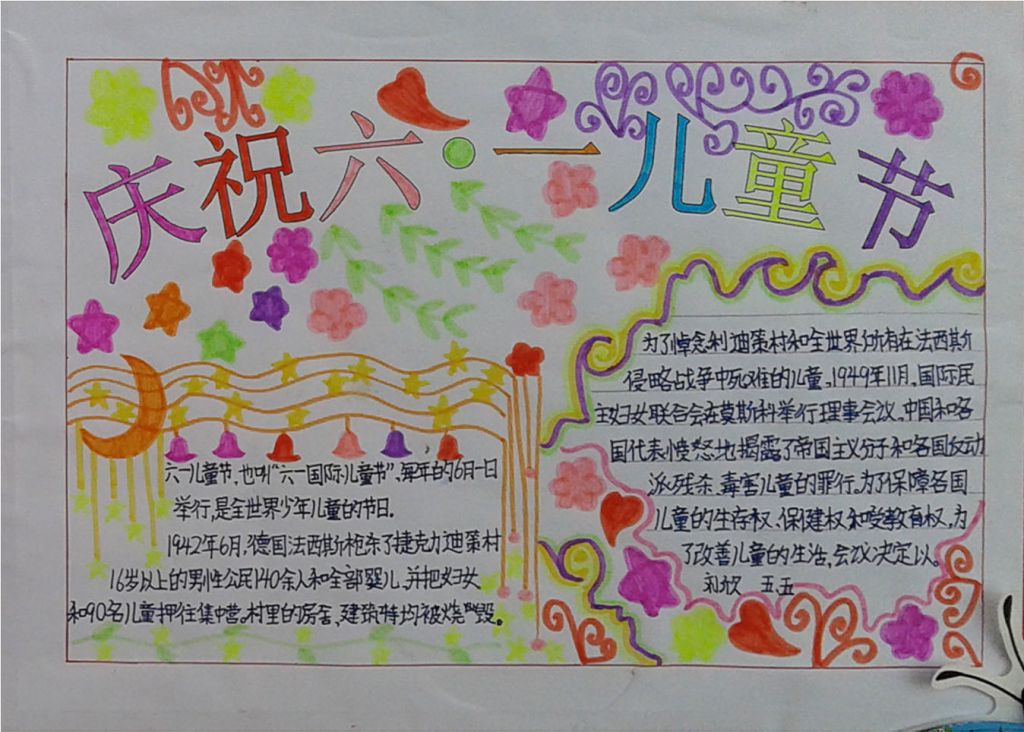 庆祝六·一儿童节
六一儿童节，也叫“六一国际儿童节”，每年的6月一日
举行，是全世界少年儿童的节日。
1942年6月，德国法西斯枪杀了捷克利迪策村
16岁以上的男性公民140余人和全部婴儿，并把妇女
和90名儿童押往集中营。村里的房舍，建筑物均被烧毁。
为了悼念利迪策村和全世界所有在法西斯
侵略战争中死难的儿童。1949年11月，国际民
主妇女联合会在莫斯科举行理事会议，中国和各
国代表愤怒地揭露了帝国主义分子和各国反动
派残杀、毒害儿童的罪行。为了保障各国
儿童的生存权、保健权和受教育权，为
了改善儿童的生活，会议决定以。
刘欣 五.五